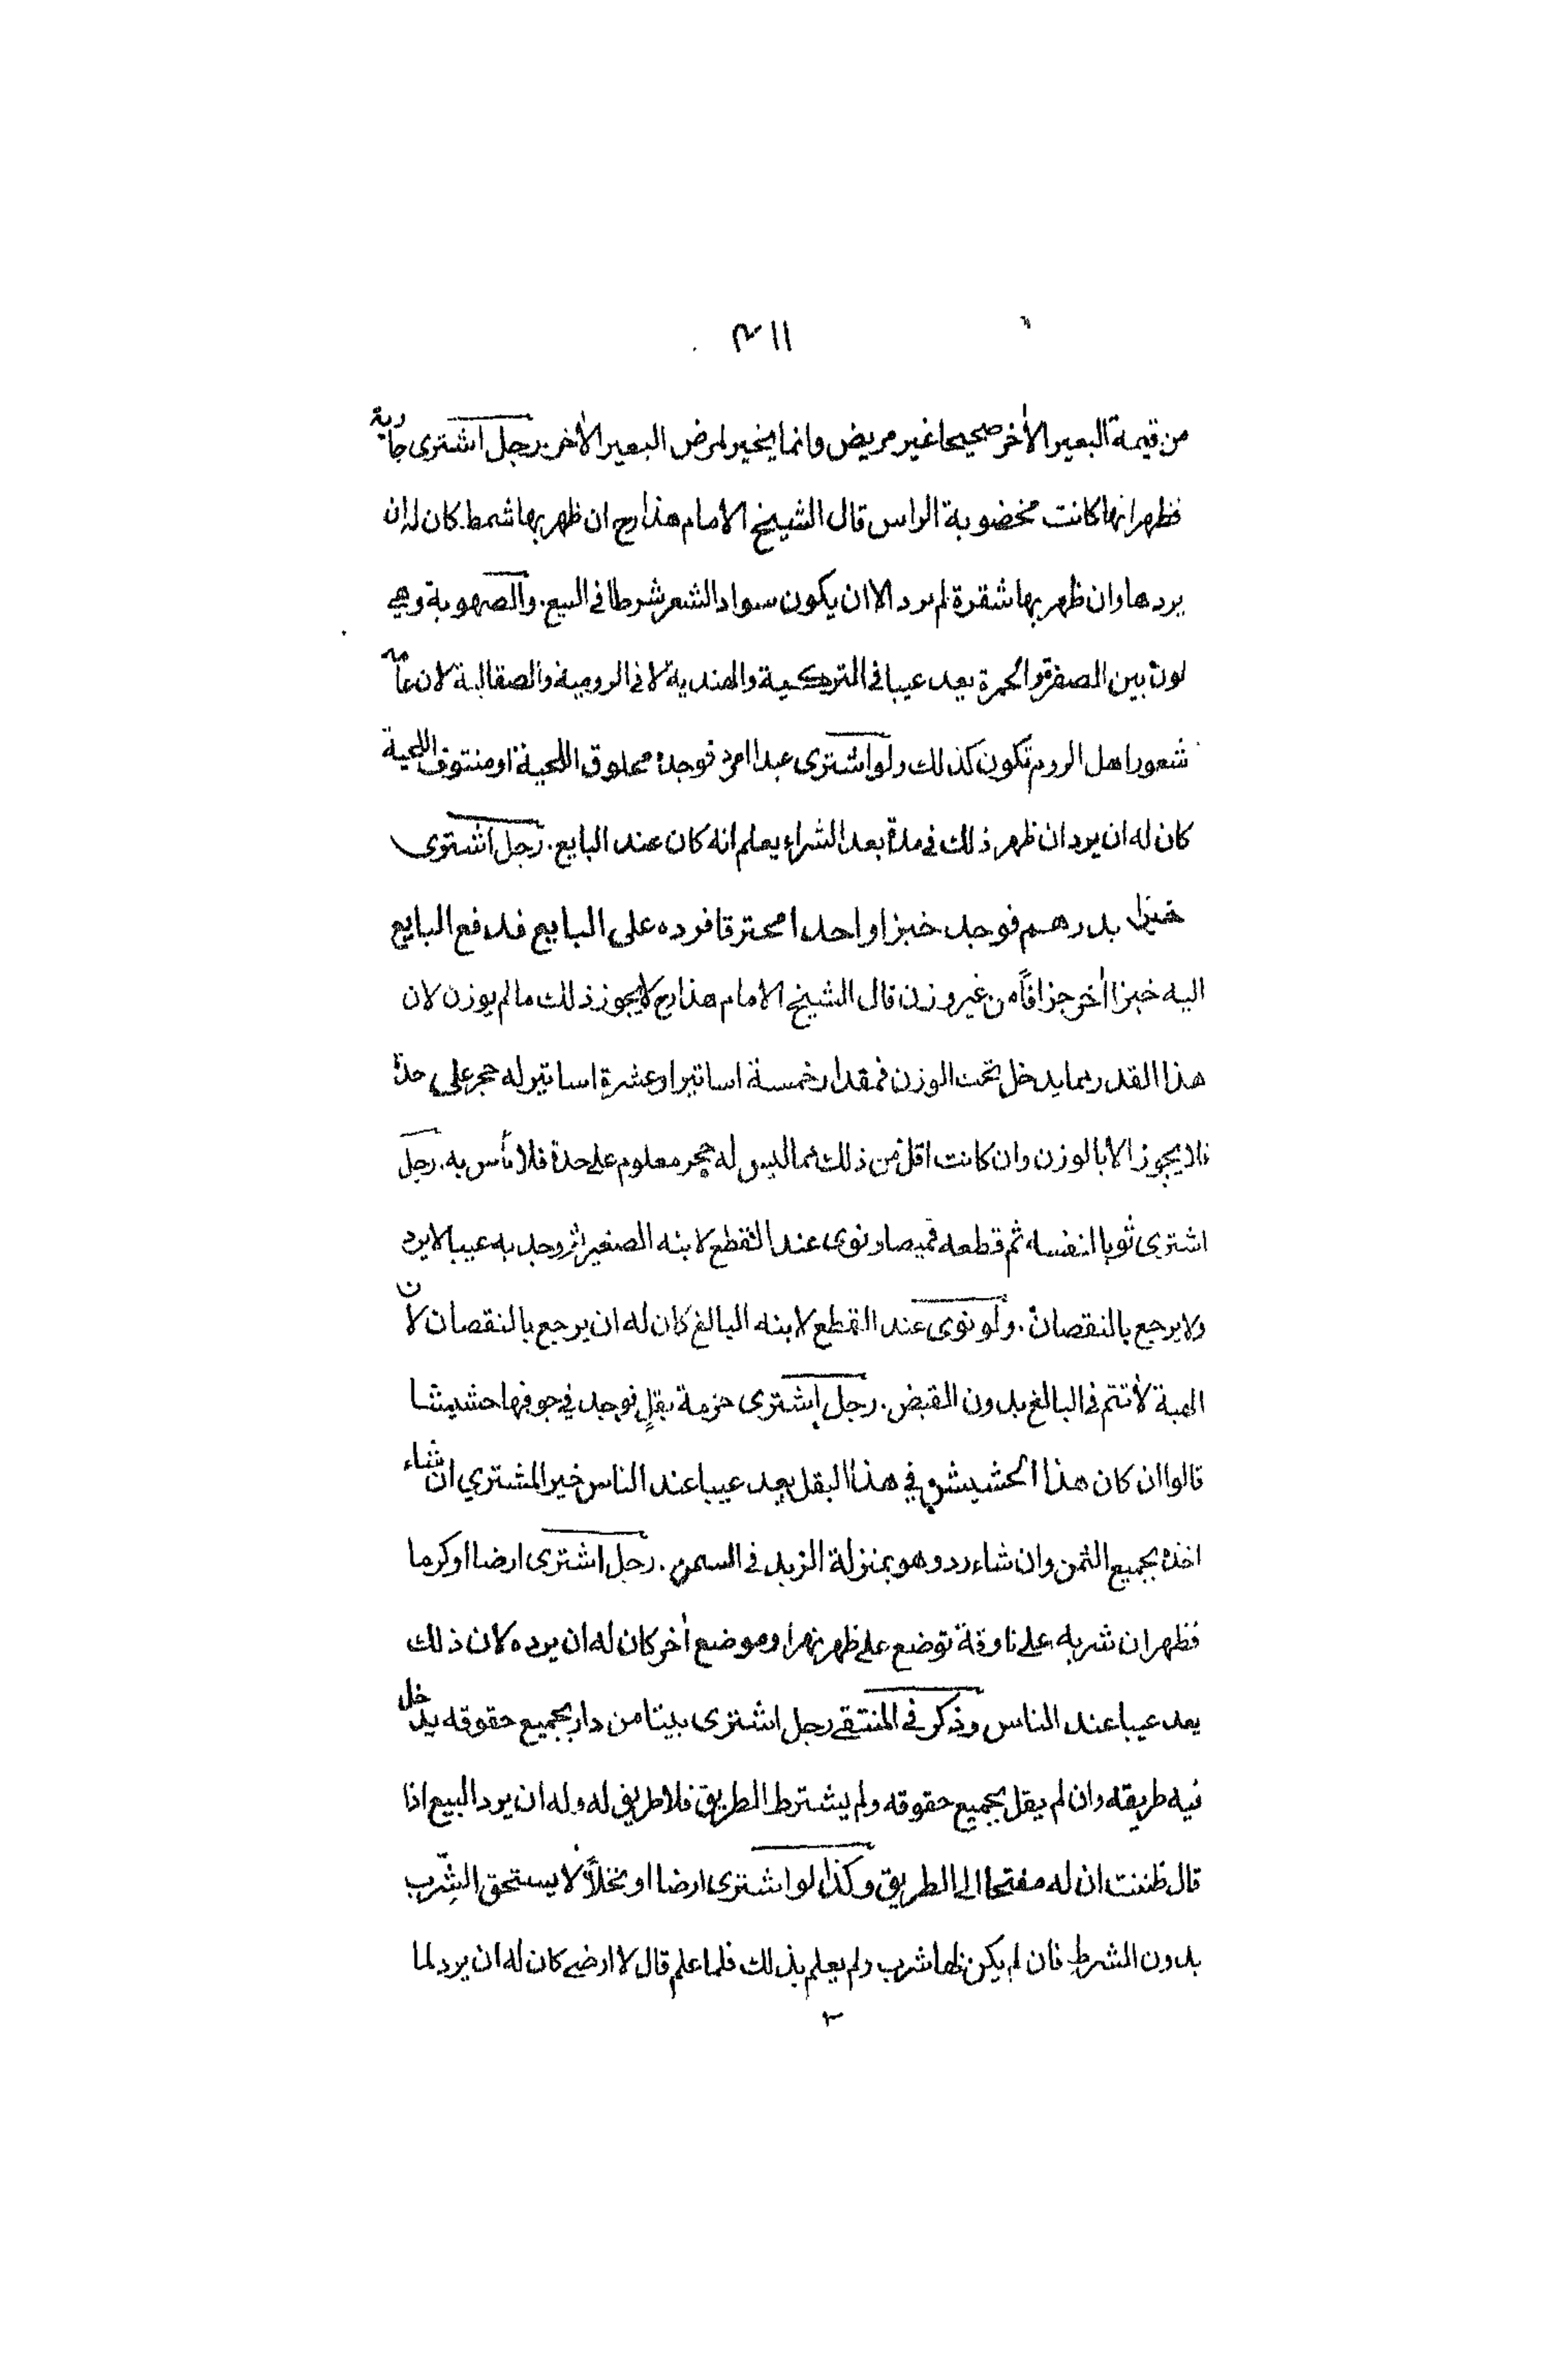 ٣١١
من قيمة البعير الأخر صحيحا غير مريض وانما يخير لمرض البعير الأخر. رجل اشترى جارية
فظهر انها كانت مخضوبة الراس قال الشيخ الامام هذا رح ان ظهر بها شمط كان له ان
يردها وان ظهر بها شقرة لم يرد الا ان يكون سواد الشعر شرطا في البيع. والصهوبة وهي
لون بين الصفرة والحمرة يعد عيبا في التركية والهندية لا في الرومية والصقالبة لان عامة
شعور اهل الروم تكون كذلك ولو اشترى عبدا امرد فوجده محلوق اللحية او منتوف اللحية
كان له ان يرد ان ظهر ذلك في مدة بعد الشراء يعلم انه كان عند البايع. رجل اشترى
خبزا بدرهم فوجد خبزا واحدا محترقا فرده على البايع فدفع البايع
اليه خبزا أخر جزافاً من غير وزن قال الشيخ الامام هذا رح لا يجوز ذلك ما لم يوزن لان
هذا القدر بما يدخل تحت الوزن فمقدار خمسة اساتير او عشرة اساتير له حجر على حدة
فلا يجوز الا بالوزن وان كانت اقل من ذلك مما ليس له حجر معلوم على حدة فلا بأس به. رجل
اشترى ثوبا لنفسه ثم قطعه قميصا ونوى عند القطع لابنه الصغير ثم وجد به عيبا لا يرد
ولا يرجع بالنقصان. ولو نوى عند القطع لابنه البالغ كان له ان يرجع بالنقصان لان
الهبة لا تتم في البالغ بدون القبض. رجل اشترى حزمة بقلٍ فوجد في جوفها حشيشا
قالوا ان كان هذا الحشيش في هذا البقل يعد عيبا عند الناس خير المشتري ان شاء
اخذه بجميع الثمن وان شاء رد وهو بمنزلة الزبد في السمن. رجل اشترى ارضا او كرما
فظهر ان شربه على ناوقة توضع على ظهر نهر او موضع أخر كان له ان يرده لان ذلك
يعد عيبا عند الناس وذكر في المنتقى رجل اشترى بيتا من دار بجميع حقوقه يدخل
فيه طريقه وان لم يقل بجميع حقوقه ولم يشترط الطريق فلا طريق له وله ان يرد البيع اذا
قال ظننت ان له مفتحا الى الطريق وكذا لو اشترى ارضا او نخلاً لا يستحق الشِّرب
بدون الشرط فان لم يكن لها شرب ولم يعلم بذلك فلما علم قال لا ارضى كان له ان يرد لما